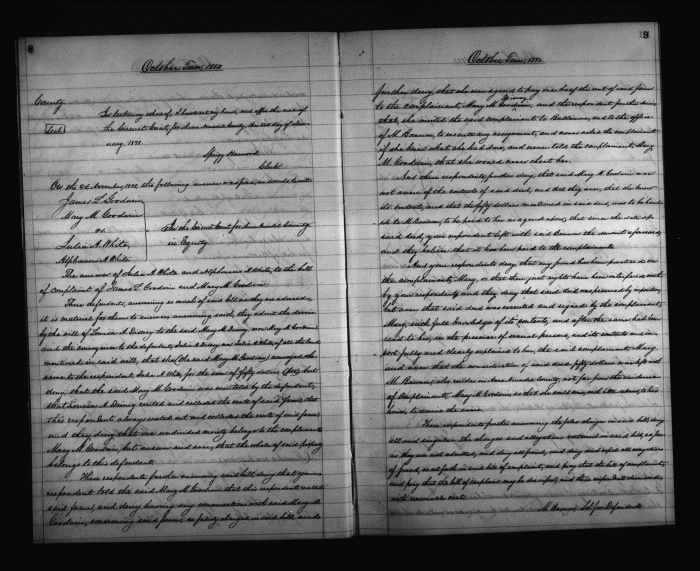 8
October Term, 1882
County
Seal
In testimony whereof, I hereunto set my hand, and affix the seal of
the Circuit Court, for Anne Arundel County, this 21st day of
1878.
Sprigg Harwood
Clerk
On the 2d November, 1882, the following answer was filed, in words to wit:
James L. Goodwin,
Mary M. Goodwin
vs
Julia A. White,
Alphonso A. White
In the Circuit Court for Anne Arundel County
in Equity
The answer of Julia A. White and Alphonso A. White, to the bill
of Complaint of James L. Goodwin and Mary M. Goodwin.
These defendants, answering so much of said bill as they are advised,
it is material for them to answer, answering said, they admit the devise
by the will of Louisa A. Disney to the said Mary M. Disney now Mary M. Goodwin
and the conveyance to the defendant, Julia A. White of all the land
mentioned in said will, that she (the said Mary M. Goodwin) conveyed the
same to the respondent, Julia A. White, for the sum of fifty dollars, ($50), but
deny, that the said Mary M. Goodwin was
that Louisa A. Disney rented and collected the rents of said farm, but
this respondent always rented out and collected the rents of said farm,
and they deny that one undivided moiety belongs to the complainant
Mary M. Goodwin, but answer and aver, that the whole of said property
belongs to this defendant.
These respondents further answering said bill, deny that your
respondent told the said Mary M. Goodwin that this respondent
said farm, and deny having any conversation with said Mary M.
Goodwin, concerning said farm, as falsely charged in said bill, and
9
October Term, 1882
further deny, that she ever agreed to pay one half of the rent of said farm
to the complainant, Mary M. Goodwin, and the respondent further denies
that, she invited the said complainant to Baltimore, and to the office
of M. Bannon, to execute any assignment, and never asked the complainant
if she knew what she had done, and never told the complainant, Mary
M. Goodwin, that she would never cheat her.
And these respondents further deny, that said Mary M. Goodwin was
not aware of the contents of said deed, and that they aver, that she knew
its contents, and that the fifty dollars mentioned in said deed, was to be
to M. Bannon to be paid to her as agreed upon, that since the date of
said deed, your respondent left with said Bannon the amount aforesaid,
and they believe that it has been paid to the complainant.
And your respondents deny, that any fraud has been practiced on
the complainant, Mary, or that her just rights have been interfered with
by your respondents and they deny that said deed was
but aver that said deed was executed and signed by the complainant,
Mary, with full knowledge of its contents, and after the same had been
read to her, in the presence of several persons, and its contents and im-
port fully and clearly explained to her, the said complainant, Mary
and aver that the consideration of said deed fifty dollars was left with
M. Bannon, who resides in Anne Arundel County, not far from the residence
of Complainant, Mary M. Goodwin, so that she could
to receive the same.
These respondents further answering the false charges in said bill, deny
all and singular the charges and allegations contained in said bill, so far
as they are not admitted, and deny all fraud, and deny and repel all allegations
of fraud, as set forth in said bill of complaint, and pray that the bill of complaint
and pray that the bill of complaint may be dismissed, and these respondents dismissed,
with reasonable cost.
M. Bannon, Sol. for Defendants